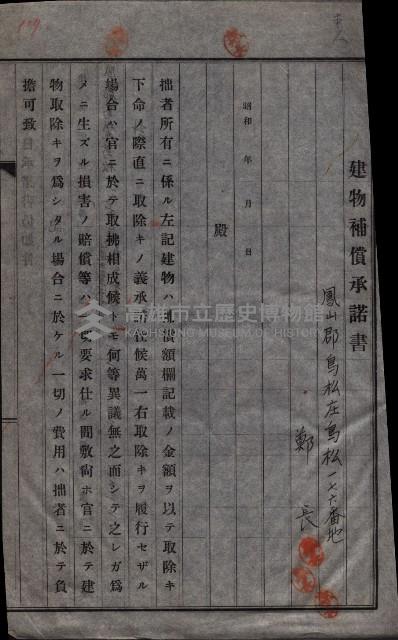 建物補償承諾書
鳳山郡鳥松庄鳥松一七六番地
鄭長
昭和年月日
殿
拙者所有ニ係ル左記建物ハ補償額欄記載ノ金額ヲ以テ取除キ
下命ノ際直ニ取除キノ義承諾仕候萬一右取除キヲ履行セザル
場合ハ官ニ於テ取拂相成候トモ何等異議無之而シテ之レガ爲
メニ生ズル損害ノ賠償等ハ一切要求仕ル間敷尙ホ官ニ於テ建
物取除キヲ爲シタル場合ニ於ケル一切ノ費用ハ拙者ニ於テ負
擔可致
高雄市立歷史博物館
KAOHSIUNG MUSEUM OF HISTORY